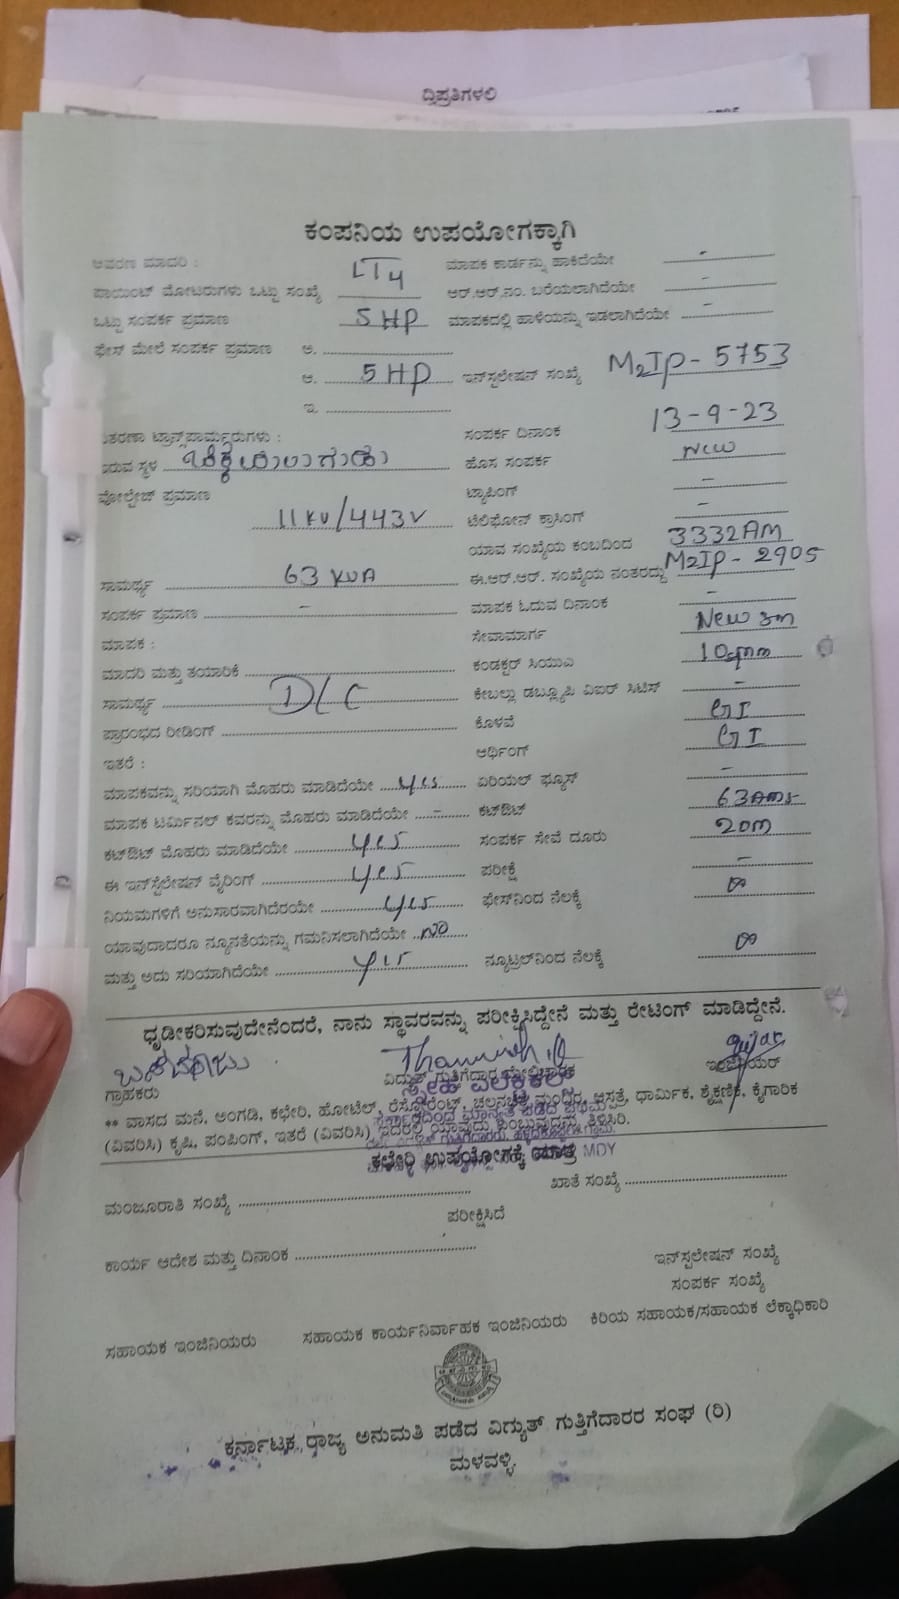 ದ್ವಿಪ್ರತಿಗಳಲಿ
ಕಂಪನಿಯ ಉಪಯೋಗಕ್ಕಾಗಿ
ಆವರಣ ಮಾದರಿ : LT4 ಮಾಪಕ ಕಾರ್ಡನ್ನು ಹಾಕಿದೆಯೇ -
ಪಾಯಿಂಟ್ ಮೋಟರುಗಳು ಒಟ್ಟು ಸಂಖ್ಯೆ ಆರ್.ಆರ್.ನಂ. ಬರೆಯಲಾಗಿದೆಯೇ -
ಒಟ್ಟು ಸಂಪರ್ಕ ಪ್ರಮಾಣ 5 HP ಮಾಪಕದಲ್ಲಿ ಹಾಳೆಯನ್ನು ಇಡಲಾಗಿದೆಯೇ -
ಫೇಸ್ ಮೇಲೆ ಸಂಪರ್ಕ ಪ್ರಮಾಣ ಅ.
ಆ. 5 HP ಇನ್‌ಸ್ಟಲೇಷನ್ ಸಂಖ್ಯೆ M2IP - 5753
ಇ.
ತರಣಾ ಟ್ರಾನ್ಸ್‌ಫಾರ್ಮ್ಮರುಗಳು : ಸಂಪರ್ಕ ದಿನಾಂಕ 13-9-23
ಇರುವ ಸ್ಥಳ ಹೊಸ ಸಂಪರ್ಕ New
ವೋಲ್ಟೇಜ್ ಪ್ರಮಾಣ ಟ್ಯಾಪಿಂಗ್ -
11 KV/443V ಟೆಲಿಫೋನ್ ಕ್ರಾಸಿಂಗ್ -
ಯಾವ ಸಂಖ್ಯೆಯ ಕಂಬದಿಂದ 3332AM
ಸಾಮರ್ಥ್ಯ 63 KVA ಈ.ಆರ್.ಆರ್. ಸಂಖ್ಯೆಯ ನಂತರದ್ದು M2IP - 2905
ಸಂಪರ್ಕ ಪ್ರಮಾಣ - ಮಾಪಕ ಓದುವ ದಿನಾಂಕ -
ಮಾಪಕ : ಸೇವಾಮಾರ್ಗ New
ಮಾದರಿ ಮತ್ತು ತಯಾರಿಕೆ ಕಂಡಕ್ಟರ್ ಸಿಯುಎ 10sqmm
ಸಾಮರ್ಥ್ಯ D/C ಕೇಬಲ್ಲು ಡಬ್ಲ್ಯೂಪಿ ಎಐರ್ ಸಿಟಿಸ್ -
ಪ್ರಾರಂಭದ ರೀಡಿಂಗ್ ಕೊಳವೆ GI
ಇತರೆ : ಆರ್ಥಿಂಗ್ GI
ಮಾಪಕವನ್ನು ಸರಿಯಾಗಿ ಮೊಹರು ಮಾಡಿದೆಯೇ yes ಏರಿಯಲ್ ಫ್ಯೂಸ್ -
ಮಾಪಕ ಟರ್ಮಿನಲ್ ಕವರನ್ನು ಮೊಹರು ಮಾಡಿದೆಯೇ - ಕಟ್‌ಔಟ್ 63
ಕಟ್‌ಔಟ್ ಮೊಹರು ಮಾಡಿದೆಯೇ yes ಸಂಪರ್ಕ ಸೇವೆ ದೂರು 20m
ಈ ಇನ್‌ಸ್ಟೆಲೇಷನ್ ವೈರಿಂಗ್ yes ಪರೀಕ್ಷೆ -
ನಿಯಮಗಳಿಗೆ ಅನುಸಾರವಾಗಿದೆರಯೇ yes ಫೇಸ್‌ನಿಂದ ನೆಲಕ್ಕೆ ∞
ಯಾವುದಾದರೂ ನ್ಯೂನತೆಯನ್ನು ಗಮನಿಸಲಾಗಿದೆಯೇ NO
ಮತ್ತು ಅದು ಸರಿಯಾಗಿದೆಯೇ yes ನ್ಯೂಟ್ರಲ್‌ನಿಂದ ನೆಲಕ್ಕೆ ∞
ಧೃಡೀಕರಿಸುವುದೇನೆಂದರೆ, ನಾನು ಸ್ಥಾವರವನ್ನು ಪರೀಕ್ಷಿಸಿದ್ದೇನೆ ಮತ್ತು ರೇಟಿಂಗ್ ಮಾಡಿದ್ದೇನೆ.
ಗ್ರಾಹಕರು ವಿದ್ಯುತ್ ಗುತ್ತಿಗೆದಾರ ಇಂಜಿನಿಯರ್
** ವಾಸದ ಮನೆ, ಅಂಗಡಿ, ಕಛೇರಿ, ಹೋಟೆಲ್, ರೆಸ್ಟೋರೆಂಟ್, ಚಲನಚಿತ್ರ ಮಂದಿರ, ಆಸ್ಪತ್ರೆ, ಧಾರ್ಮಿಕ, ಶೈಕ್ಷಣಿಕ, ಕೈಗಾರಿಕ
(ವಿವರಿಸಿ) ಕೃಷಿ, ಪಂಪಿಂಗ್, ಇತರೆ (ವಿವರಿಸಿ) ಇದರಲ್ಲಿ ಯಾವುದು ಎಂಬುವುದನ್ನು ತಿಳಿಸಿರಿ.
ಕಛೇರಿ ಉಪಯೋಗಕ್ಕೆ ಮಾತ್ರ MDY
ಮಂಜೂರಾತಿ ಸಂಖ್ಯೆ ಖಾತೆ ಸಂಖ್ಯೆ
ಪರೀಕ್ಷಿಸಿದೆ
ಕಾರ್ಯ ಆದೇಶ ಮತ್ತು ದಿನಾಂಕ
ಇನ್‌ಸ್ಪಲೇಷನ್ ಸಂಖ್ಯೆ
ಸಂಪರ್ಕ ಸಂಖ್ಯೆ
ಸಹಾಯಕ ಇಂಜಿನಿಯರು ಸಹಾಯಕ ಕಾರ್ಯನಿರ್ವಾಹಕ ಇಂಜಿನಿಯರು ಕಿರಿಯ ಸಹಾಯಕ/ಸಹಾಯಕ ಲೆಕ್ಕಾಧಿಕಾರಿ
ಕರ್ನಾಟಕ ರಾಜ್ಯ ಅನುಮತಿ ಪಡೆದ ವಿದ್ಯುತ್ ಗುತ್ತಿಗೆದಾರರ ಸಂಘ (ರಿ)
ಮಳವಳ್ಳಿ.